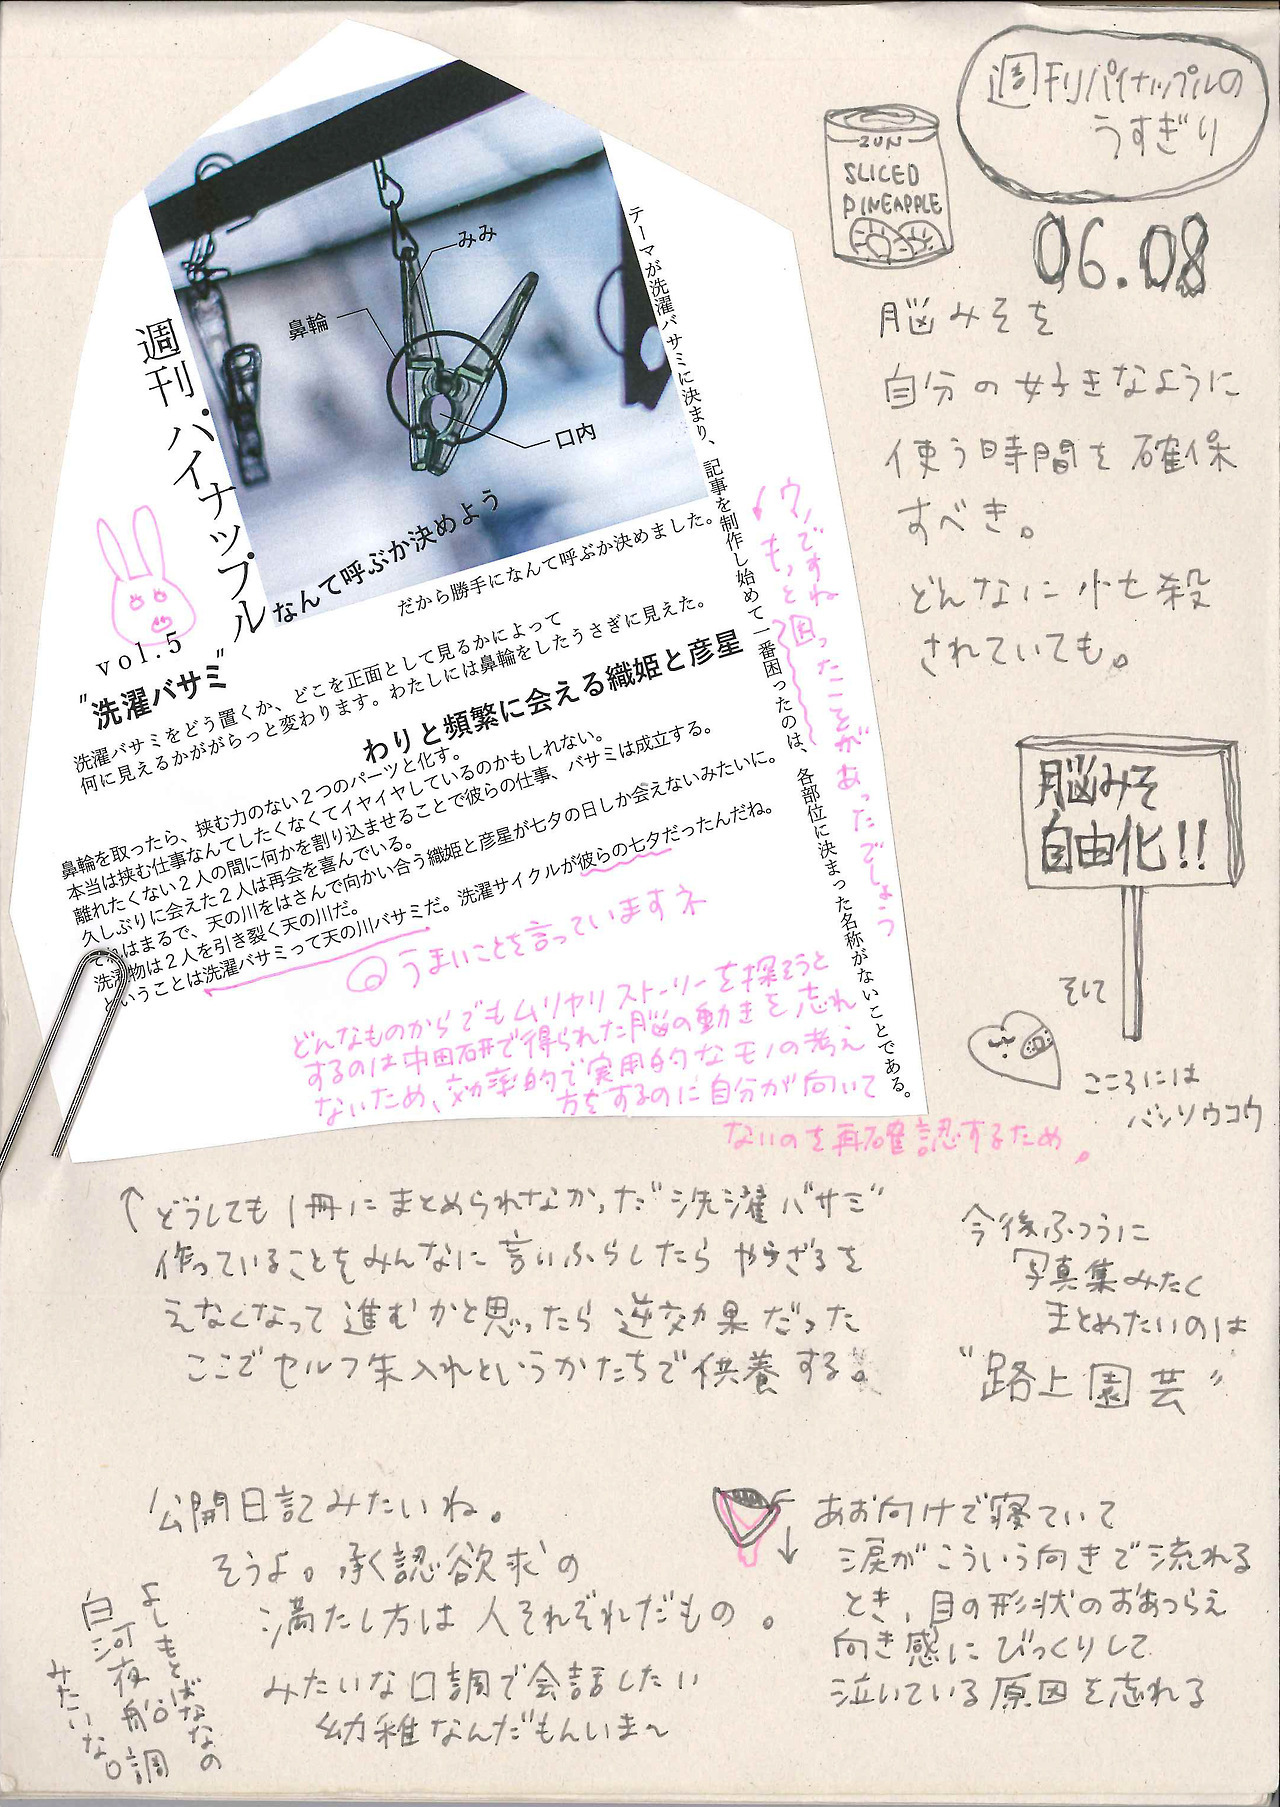 週刊パイナップルの
うすぎり
ZUN
SLICED
PINEAPPLE
06.08
脳みそを
自分の好きなように
使う時間を確保
すべき。
どんなに忙殺
されていても。
脳みそ
自由化!!
そして
こころには
バンソウコウ
みみ
鼻輪
口内
週刊・パイナップル
vol.5
"洗濯バサミ"
なんて呼ぶか決めよう
テーマが洗濯バサミに決まり、記事を制作し始めて一番困ったのは、各部位に決まった名称がないことである。
だから勝手になんて呼ぶか決めました。
洗濯バサミをどう置くか、どこを正面として見るかによって
何に見えるかががらっと変わります。わたしには鼻輪をしたうさぎに見えた。
わりと頻繁に会える織姫と彦星
鼻輪を取ったら、挟む力のない2つのパーツと化す。
本当は挟む仕事なんてしたくなくてイヤイヤしているのかもしれない。
離れたくない2人の間に何かを割り込ませることで彼らの仕事、バサミは成立する。
久しぶりに会えた2人は再会を喜んでいる。
それはまるで、天の川をはさんで向かい合う織姫と彦星が七夕の日しか会えないみたいに。
洗濯物は2人を引き裂く天の川だ。
ということは洗濯バサミって天の川バサミだ。洗濯サイクルが彼らの七夕だったんだね。
ウソですね
もっと困ったことがあったでしょう
うまいことを言っていますネ
どんなものからでもムリヤリストーリーを探そうと
するのは中田研で得られた脳の動きを忘れ
ないため、効率的で実用的なモノの考え
方をするのに自分が向いて
ないのを再確認するため。
↑どうしても1冊にまとめられなかった"洗濯バサミ"
作っていることをみんなに言いふらしたらやらざるを
えなくなって進むかと思ったら逆効果だった
ここでセルフ朱入れというかたちで供養する。
今後ふつうに
写真集みたく
まとめたいのは
"路上園芸"
公開日記みたいね。
そうよ。承認欲求の
満たし方は人それぞれだもの。
みたいな口調で会話したい
幼稚なんだもんいま〜
よしもとばななの
白河夜船調
みたいな。
あお向けで寝ていて
涙がこういう向きで流れる
とき、目の形状のおあつらえ
向き感にびっくりして
泣いている原因を忘れる